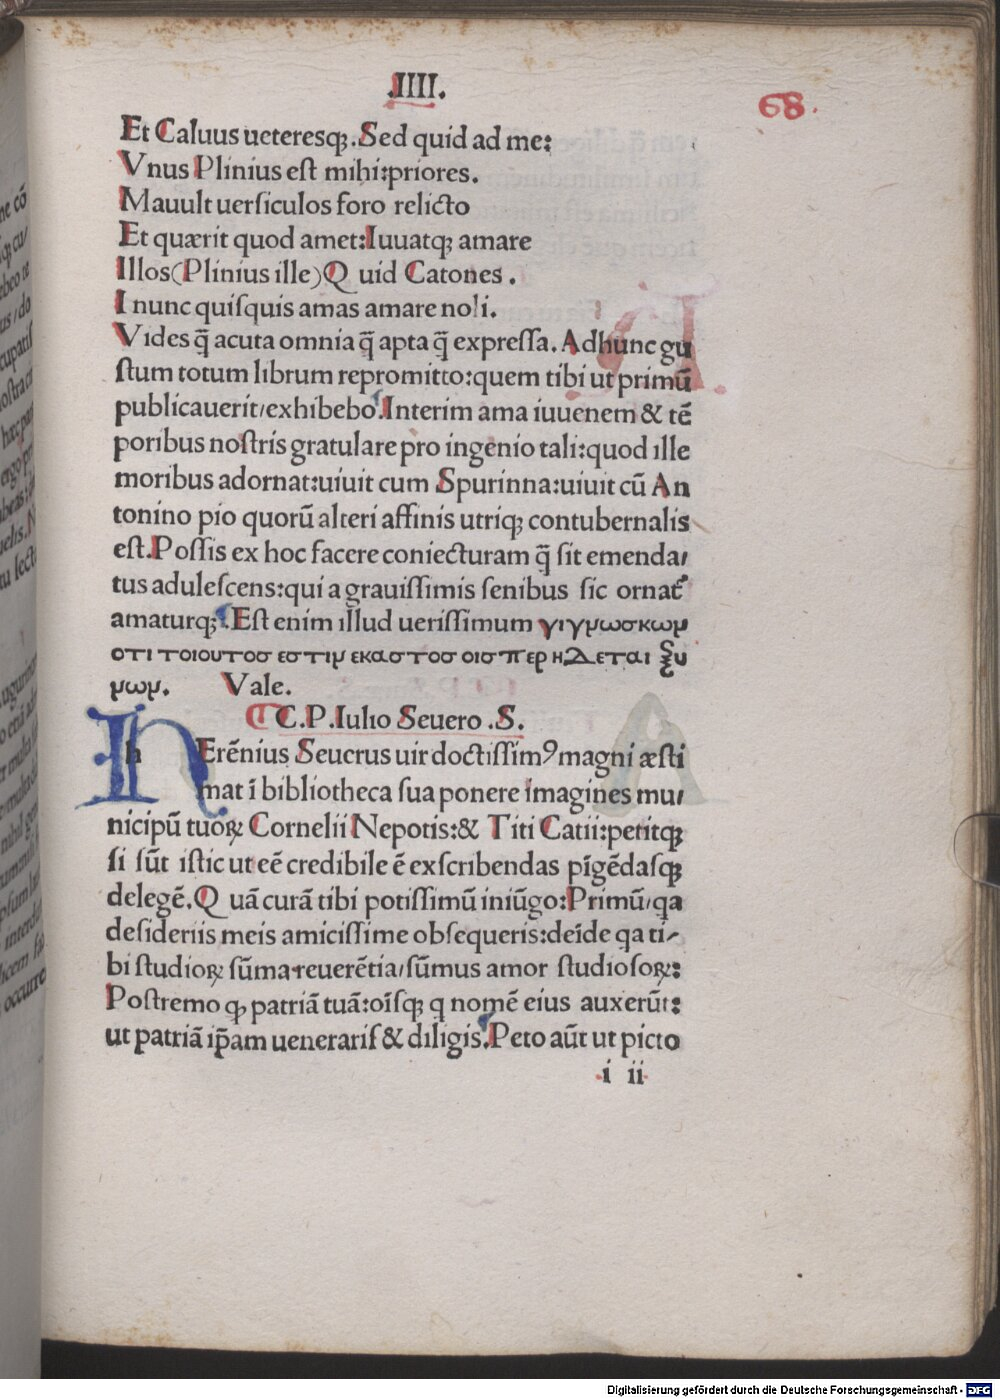 .IIII.
68.
Et Caluus ueteresq;. Sed quid ad me:
Vnus Plinius eſt mihi:priores.
Mauult uerſiculos foro relicto
Et quærit quod amet:Iuuatq; amare
Illos(Plinius ille)Q uid Catones .
I nunc quiſquis amas amare noli.
Vides q̃ acuta omnia q̃ apta q̃ expreſſa. Adhunc gu
ſtum totum librum repromitto:quem tibi ut primũ
publicauerit/exhibebo.Interim ama iuuenem & tẽ
poribus noſtris gratulare pro ingenio tali:quod ille
moribus adornat:uiuit cum Spurinna:uiuit cũ An
tonino pio quorũ alteri affinis utriq; contubernalis
eſt.Poſſis ex hoc facere coniecturam q̃ ſit emenda/
tus aduleſcens:qui a grauiſſimis ſenibus ſic ornat᷒
amaturq;.Eſt enim illud ueriſſimum γιγμωσκωμ
οτι τοιουτοσ εστιμ εκαστοσ οισπερ ηΔεται ξυ
μωμ. Vale.
C.P.Iulio Seuero .S.
h Erẽnius Seucrus uir doctiſſimꝰ magni æſti
mat ĩ bibliotheca ſua ponere imagines mu/
nicipũ tuoꝝ Cornelii Nepotis:& Titi Catii:petitq;
ſi ſũt iſtic ut eẽ credibile ẽ exſcribendas pĩgẽdaſq;
delegẽ.Q uã curã tibi potiſſimũ iniũgo:Primũ/qa
deſideriis meis amiciſſime obſequeris:deĩde qa ti/
bi ſtudioꝝ ſũma reuerẽtia/ſũmus amor ſtudioſoꝝ:
Poſtremo ꝙ patriã tuã:oĩſq; q nomẽ eius auxerũt:
ut patriã ip̃am ueneraris & diligis.Peto aũt ut picto
i ii
Digitalisierung gefördert durch die Deutsche Forschungsgemeinschaft - DFG